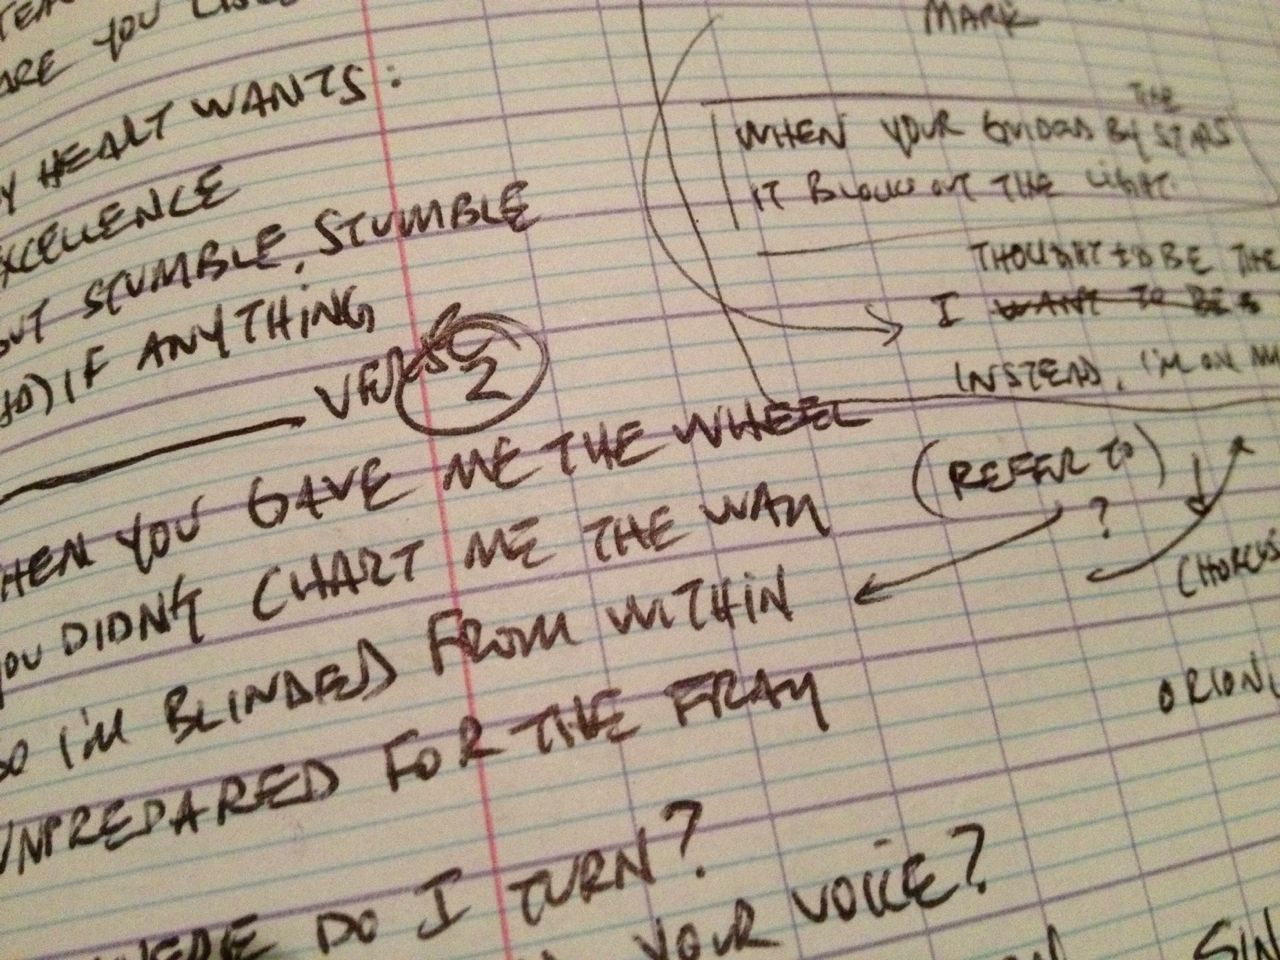 ARE YOU
HEART WANTS:
EXCELLENCE
BUT STUMBLE, STUMBLE
IF ANYTHING
VERSE 2
WHEN YOU GAVE ME THE WHEEL
YOU DIDN'T CHART ME THE WAY
SO I'M BLINDED FROM WITHIN
UNPREPARED FOR THE FRAY
WHERE DO I TURN?
YOUR VOICE?
MARK
THE
WHEN YOUR GUIDED BY STARS
IT BLOWS OUT THE LIGHT
THOUGHT TO BE THE
I WANT TO BE
INSTEAD, I'M ON
(REFER TO)
?
CHORUS
ORION,